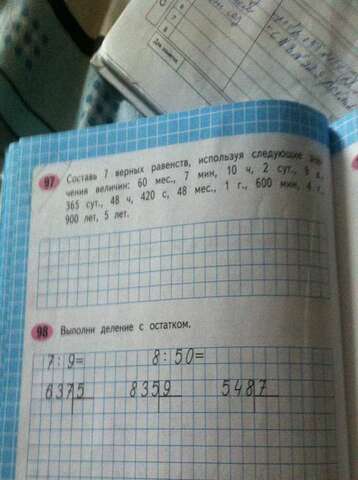 97 Составь 7 верных равенств, используя следующие зна-
чения величин: 60 мес., 7 мин, 10 ч, 2 сут., 9 в.,
365 сут., 48 ч, 420 с, 48 мес., 1 г., 600 мин, 4 г.,
900 лет, 5 лет.
98 Выполни деление с остатком.
7:9= 8:50=
6375 8359 5487